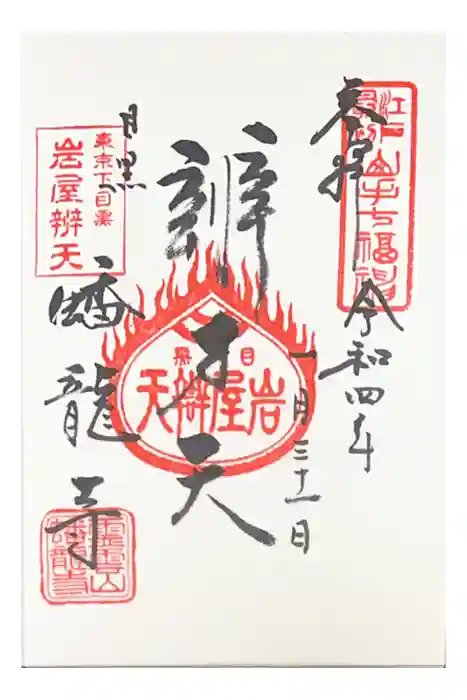 江戸
最初
山手七福神
奉拝
令和四年
一月三十一日
辨才天
目黒
岩屋辨天
東京下目黒
岩屋辨天
目黒
蟠龍寺
靈雲山
蟠龍寺